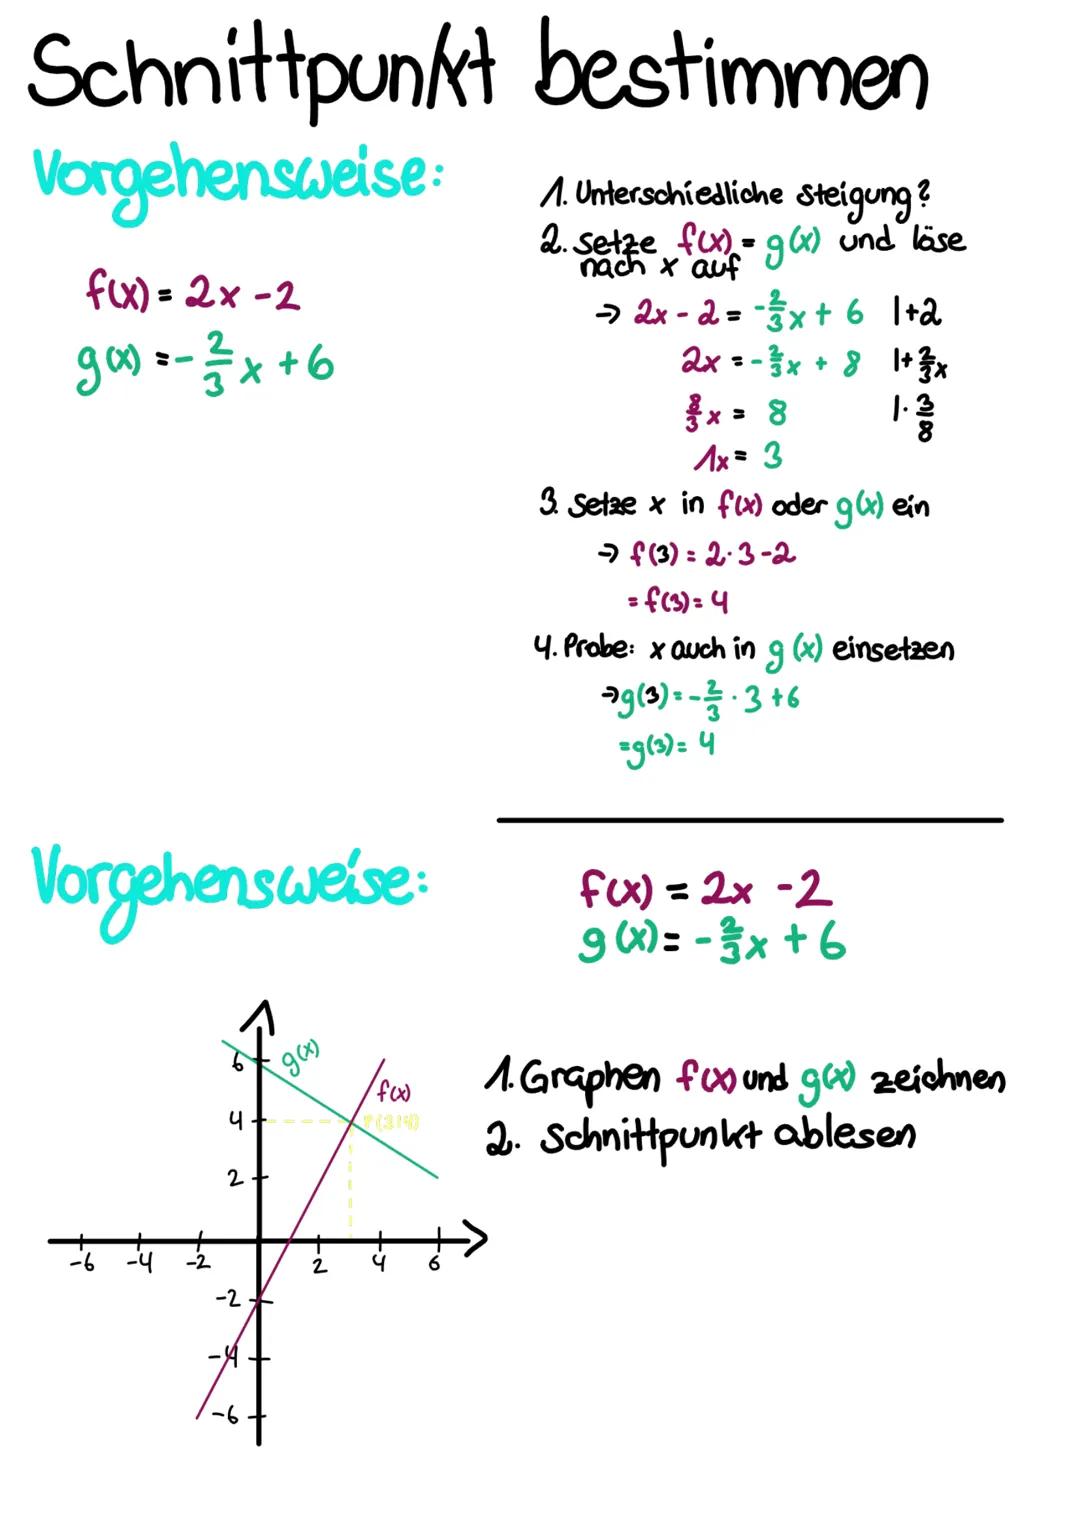 Schnittpunkt bestimmen
Vorgehensweise:
f(x) = 2x - 2
g(x) = - 2/3 x + 6
1. Unterschiedliche Steigung?
2. Setze f(x) = g(x) und läse
nach x auf
→ 2x - 2 = - 2/3 x + 6 |+2
2x = - 2/3 x + 8 |+ 2/3 x
8/3 x = 8 |· 3/8
1x = 3
3. Setze x in f(x) oder g(x) ein
→ f(3) = 2 · 3 - 2
= f(3) = 4
4. Probe: x auch in g(x) einsetzen
→ g(3) = - 2/3 · 3 + 6
= g(3) = 4
Vorgehensweise:
f(x) = 2x - 2
g(x) = - 2/3 x + 6
1. Graphen f(x) und g(x) zeichnen
2. Schnittpunkt ablesen
g(x)
6
f(x)
4
(3|4)
2
-6 -4 -2 2 4 6
-2
-4
-6